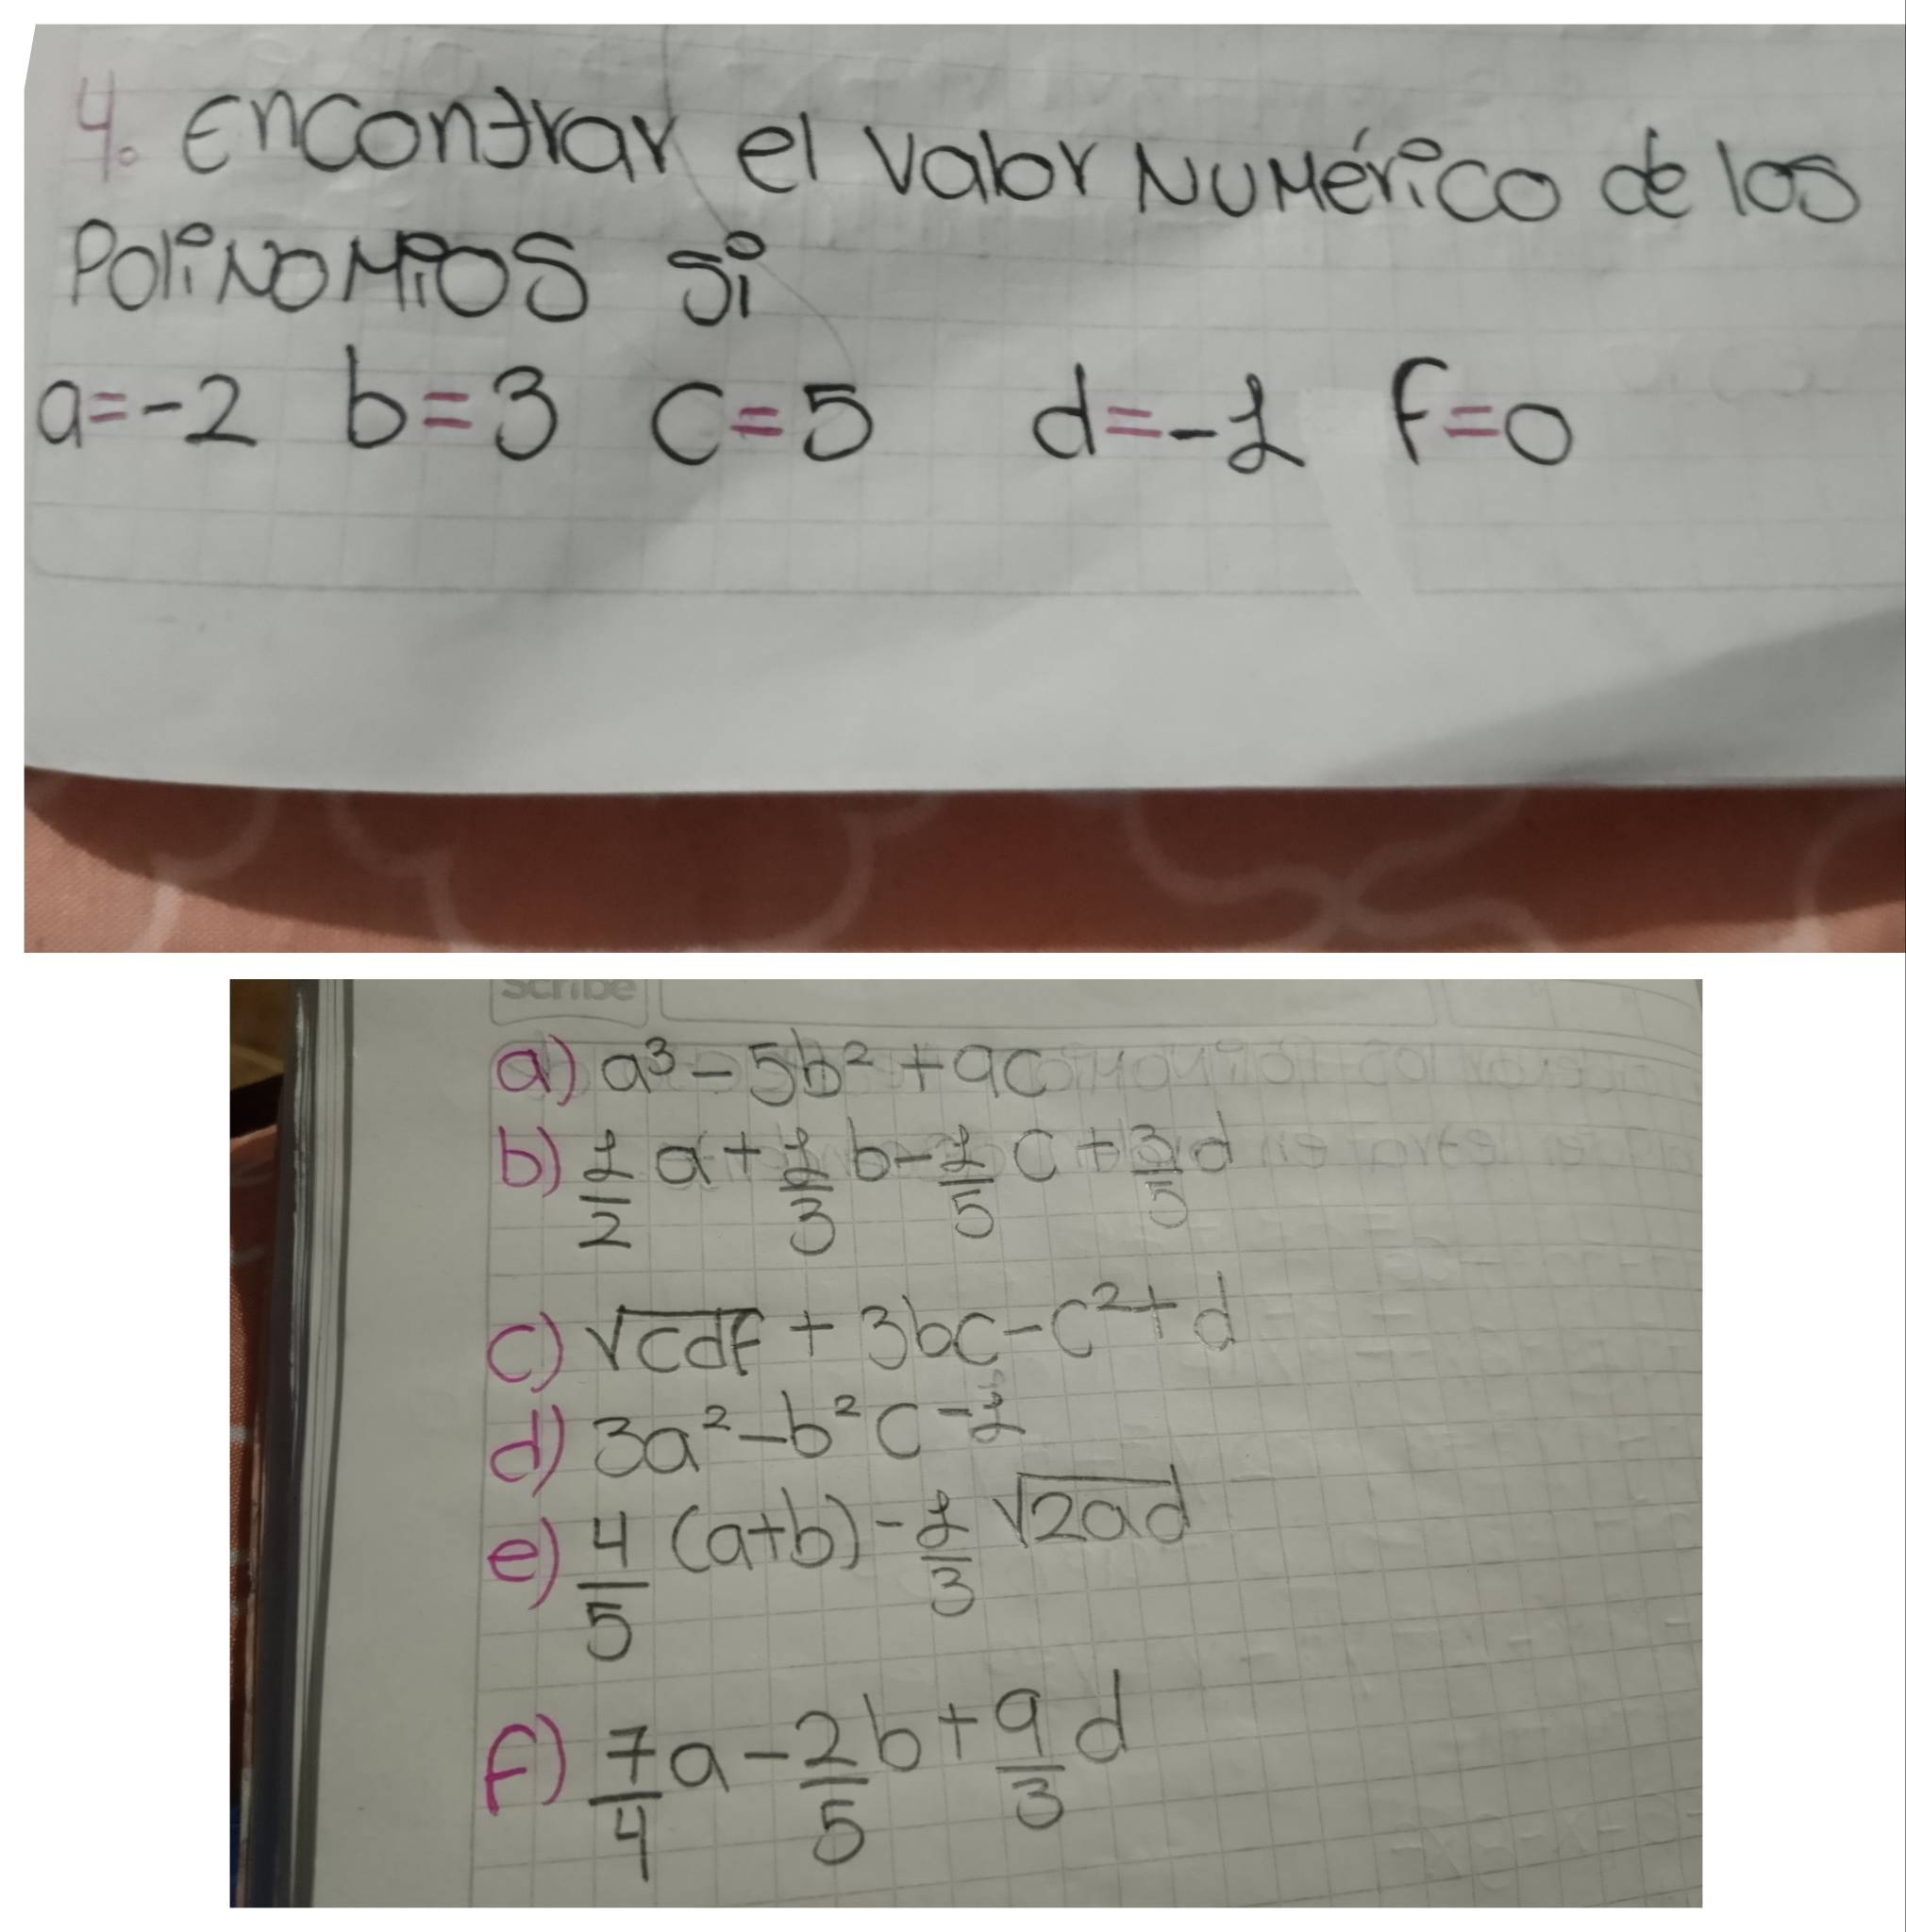 4. Encontrar el valor numérico de los
Polinomios si
a=-2 b=3 c=5 d=-1 f=0
Scribe
a) a³ - 5b² + 9c
b) 1/2 a + 1/3 b - 1/5 c + 3/5 d
c) √cdf + 3bc - c² + d
d) 3a² - b²c - 1
e) 4/5 (a+b) - 1/3 √2ad
f) 7/4 a - 2/5 b + 9/3 d